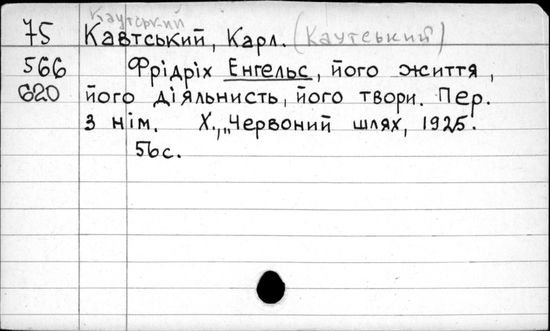 Каутський
75 Кавтський, Карл. (Каутський)
566 Фрідріх Енгельс, його життя,
620 його діяльнисть, його твори. Пер.
з нім. Х., „Червоний шлях, 1925.
56с.